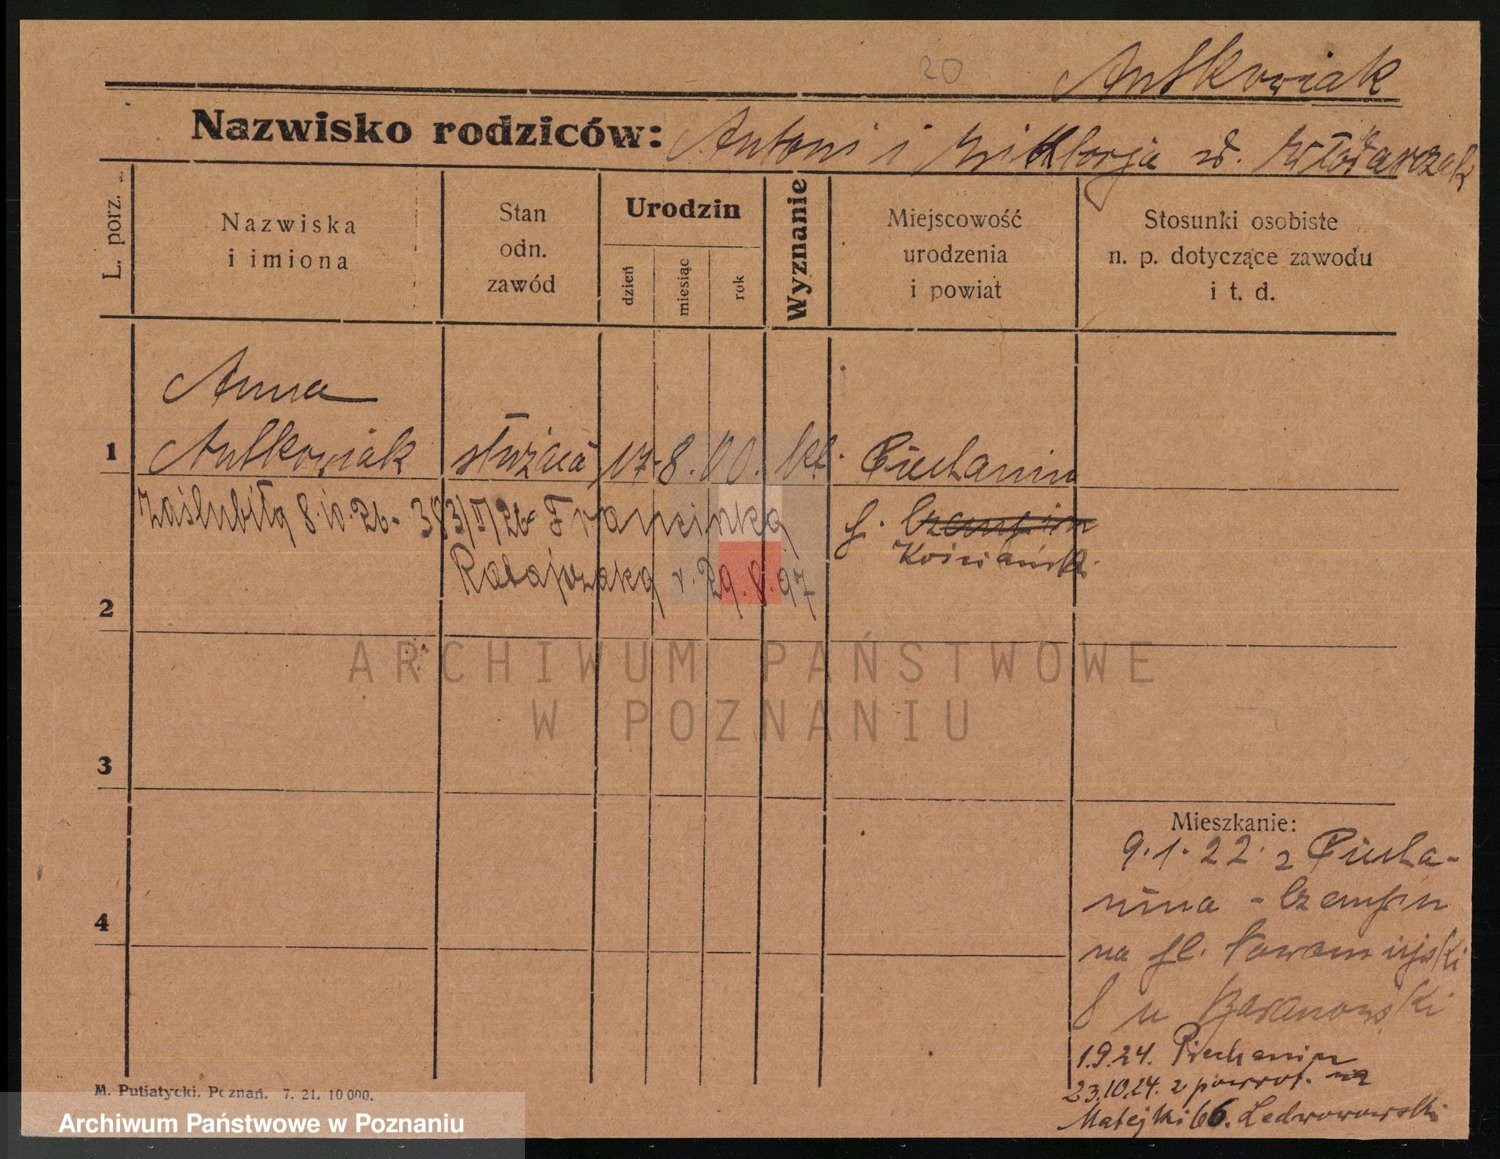 20
Antkowiak
Nazwisko rodziców: Antoni i Wiktorja zd. Włodarczak
L. porz.
Nazwiska
i imiona
Stan
odn.
zawód
Urodzin
dzień
miesiąc
rok
Wyznanie
Miejscowość
urodzenia
i powiat
Stosunki osobiste
n. p. dotyczące zawodu
i t. d.
Anna
1 Antkowiak służąca 17. 8. 00. kt. Piechanin
zaślubiła 8.10.26 - 383/II/26 Franciszka
p. Czempin
Kościański
Ratajczaka r. 29.8.97
2
ARCHIWUM PAŃSTWOWE
W POZNANIU
3
4
Mieszkanie:
9.1.22. z Piecha-
nina - Czempin
na pl. Nowomiejski
8 u Baranowski
1.9.24. Piechanin
23.10.24. z powrot. na
Matejki 66. Ledworowski
M. Putiatycki. Poznań. 7. 21. 10 000.
Archiwum Państwowe w Poznaniu